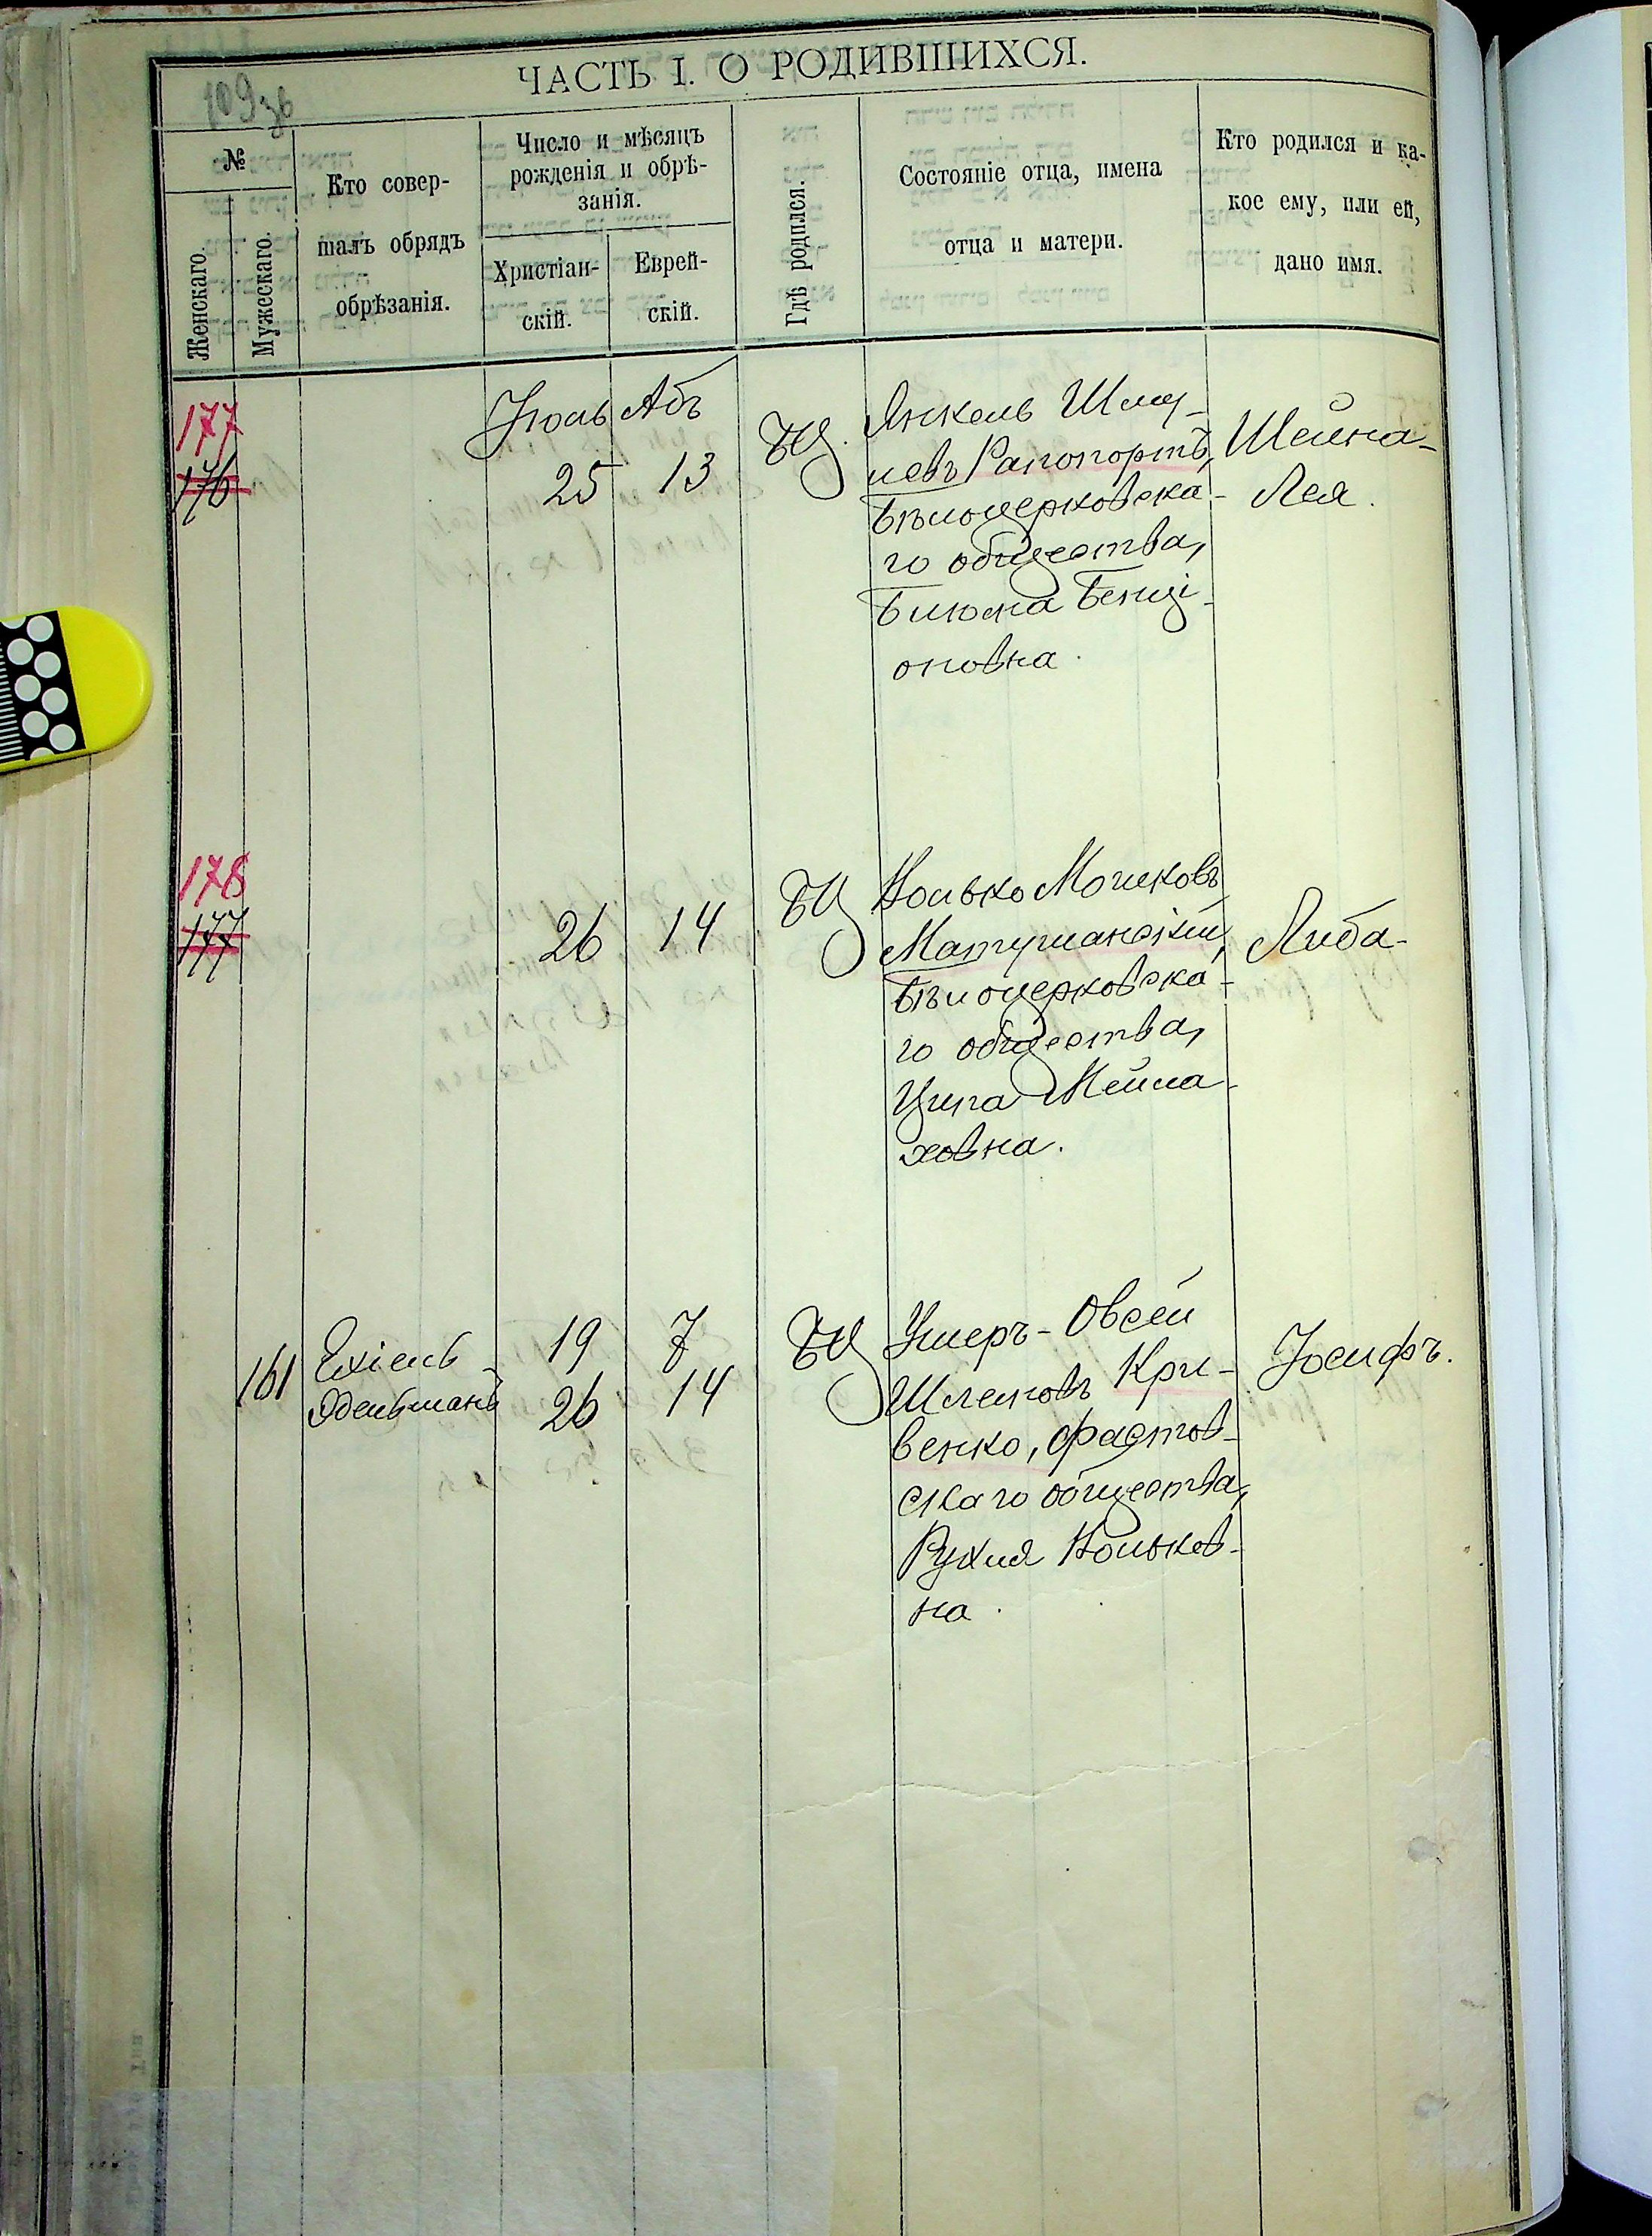 109 зв
ЧАСТЬ I. О РОДИВШИХСЯ.
№
Женскаго.
Мужескаго.
Кто совер-
шалъ обрядъ
обрѣзанія.
Число и мѣсяцъ
рожденія и обрѣ-
занія.
Христіан-
скій.
Еврей-
скій.
Гдѣ родился.
Состояніе отца, имена
отца и матери.
Кто родился и ка-
кое ему, или ей,
дано имя.
177
176
Іюль
25
Абъ
13
БЦ.
Янкель Шму-
левъ Рапопортъ,
Бѣлоцерковска-
го общества,
Блюма Бенці-
оновна.
Шейна-
Лея.
178
177
26
14
БЦ
Ноцько Мошковъ
Матушанскій,
Бѣлоцерковска-
го общества,
Ципа Мейла-
ховна.
Либа-
161
Ехіель
Эдельманъ
19
26
7
14
БЦ
Ушеръ-Овсей
Шлемовъ Кри-
венко, Фастов-
скаго общества,
Рухля
на.
Іосифъ.